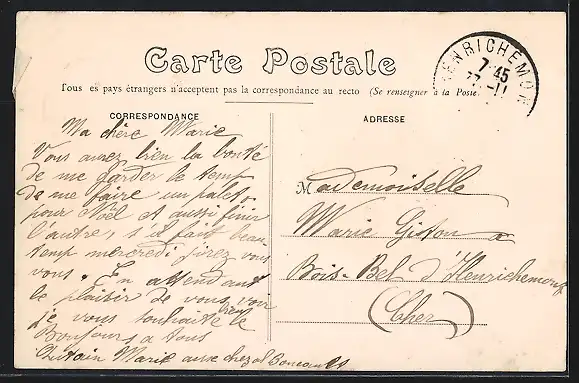 Carte Postale
Tous es pays étrangers n'acceptent pas la correspondance au recto (Se renseigner à la Poste
CORRESPONDANCE
Ma chère Marie
Vous aurez bien la bonté
de me garder le temp
de me faire un palet,
pour Noël et aussi finir
l'autre, s'il fait beau
temp mercredi j'irez vous
vous. En attendant
le plaisir de vous voir
je vous souhaite le
Bonjour a tous
Marie chez
ADRESSE
Mademoiselle
Marie a
Bois-Bel d'Henrichemont
(Cher)
HENRICHEMONT
7-45
11